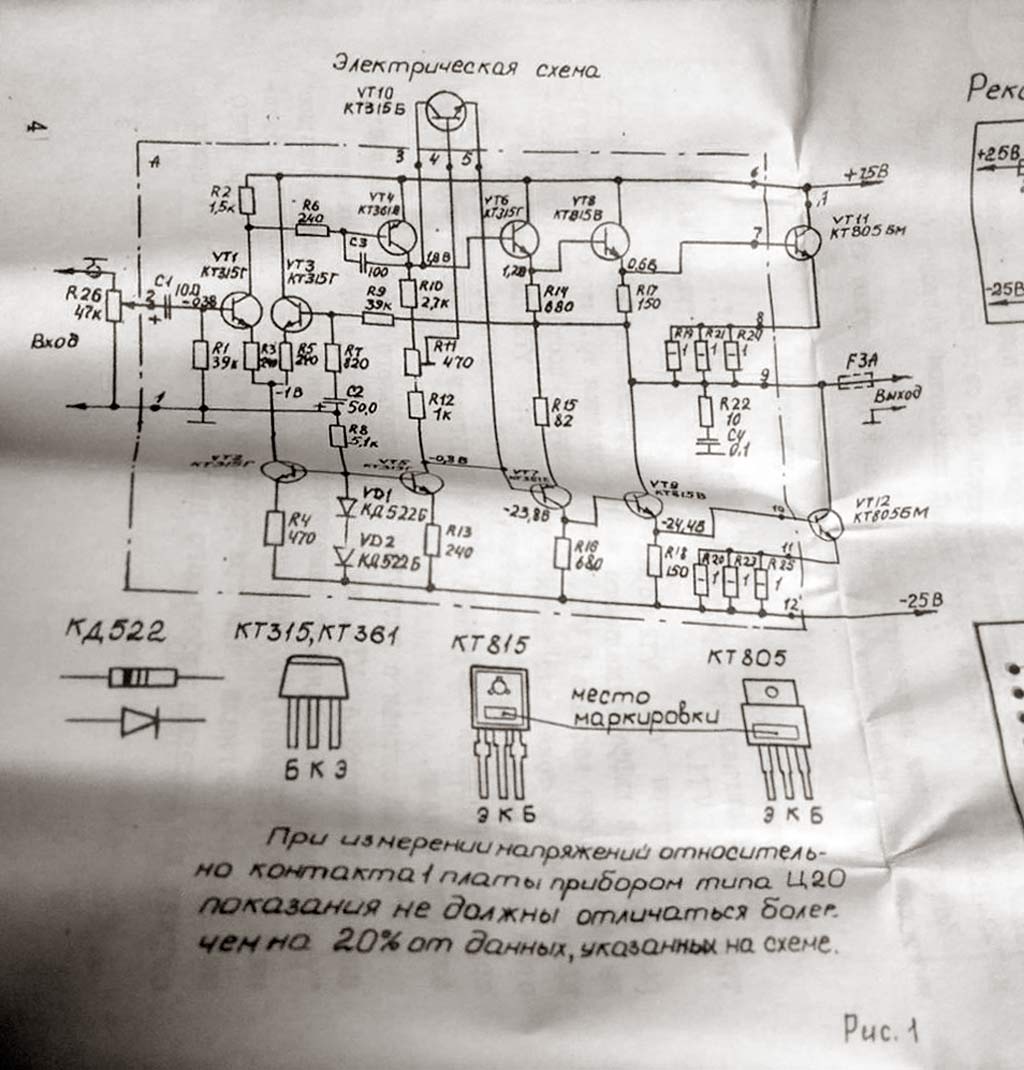 Электрическая схема
4
VT10
КТ315Б
Река
А
3 4 5
6
+25В
+25В
R2
1,5к
R6
240
VT4
КТ361В
VT6
КТ315Г
VT8
КТ815В
7
VT11
КТ805БМ
C3
100
1,8В
VT1
КТ315Г
VT3
КТ315Г
1,2В
0,6В
C1
10,0
-0,3В
R26
47к
2
+
R9
39к
R10
2,7к
R14
680
R17
150
-25В
8
Вход
R1
39к
R3
240
R5
240
R7
820
R11
470
R19
1
R21
1
R24
1
9
F3A
Выход
-1В
C2
50,0
+
R12
1к
R15
82
R22
10
C4
0,1
1
R8
5,1к
VT2
КТ315Г
VT5
КТ315Г
-0,3В
VT7
VT9
КТ815В
VT12
КТ805БМ
R4
470
VD1
КД522Б
-23,8В
-24,4В
10
VD2
КД522Б
R13
240
R16
680
R18
150
R20
1
R23
1
R25
1
11
12
-25В
КД522
КТ315, КТ361
КТ815
КТ805
место
маркировки
Б К Э
Э К Б
Э К Б
При измерении напряжений относитель-
но контакта 1 платы прибором типа Ц20
показания не должны отличаться более
чем на 20% от данных, указанных на схеме.
Рис. 1